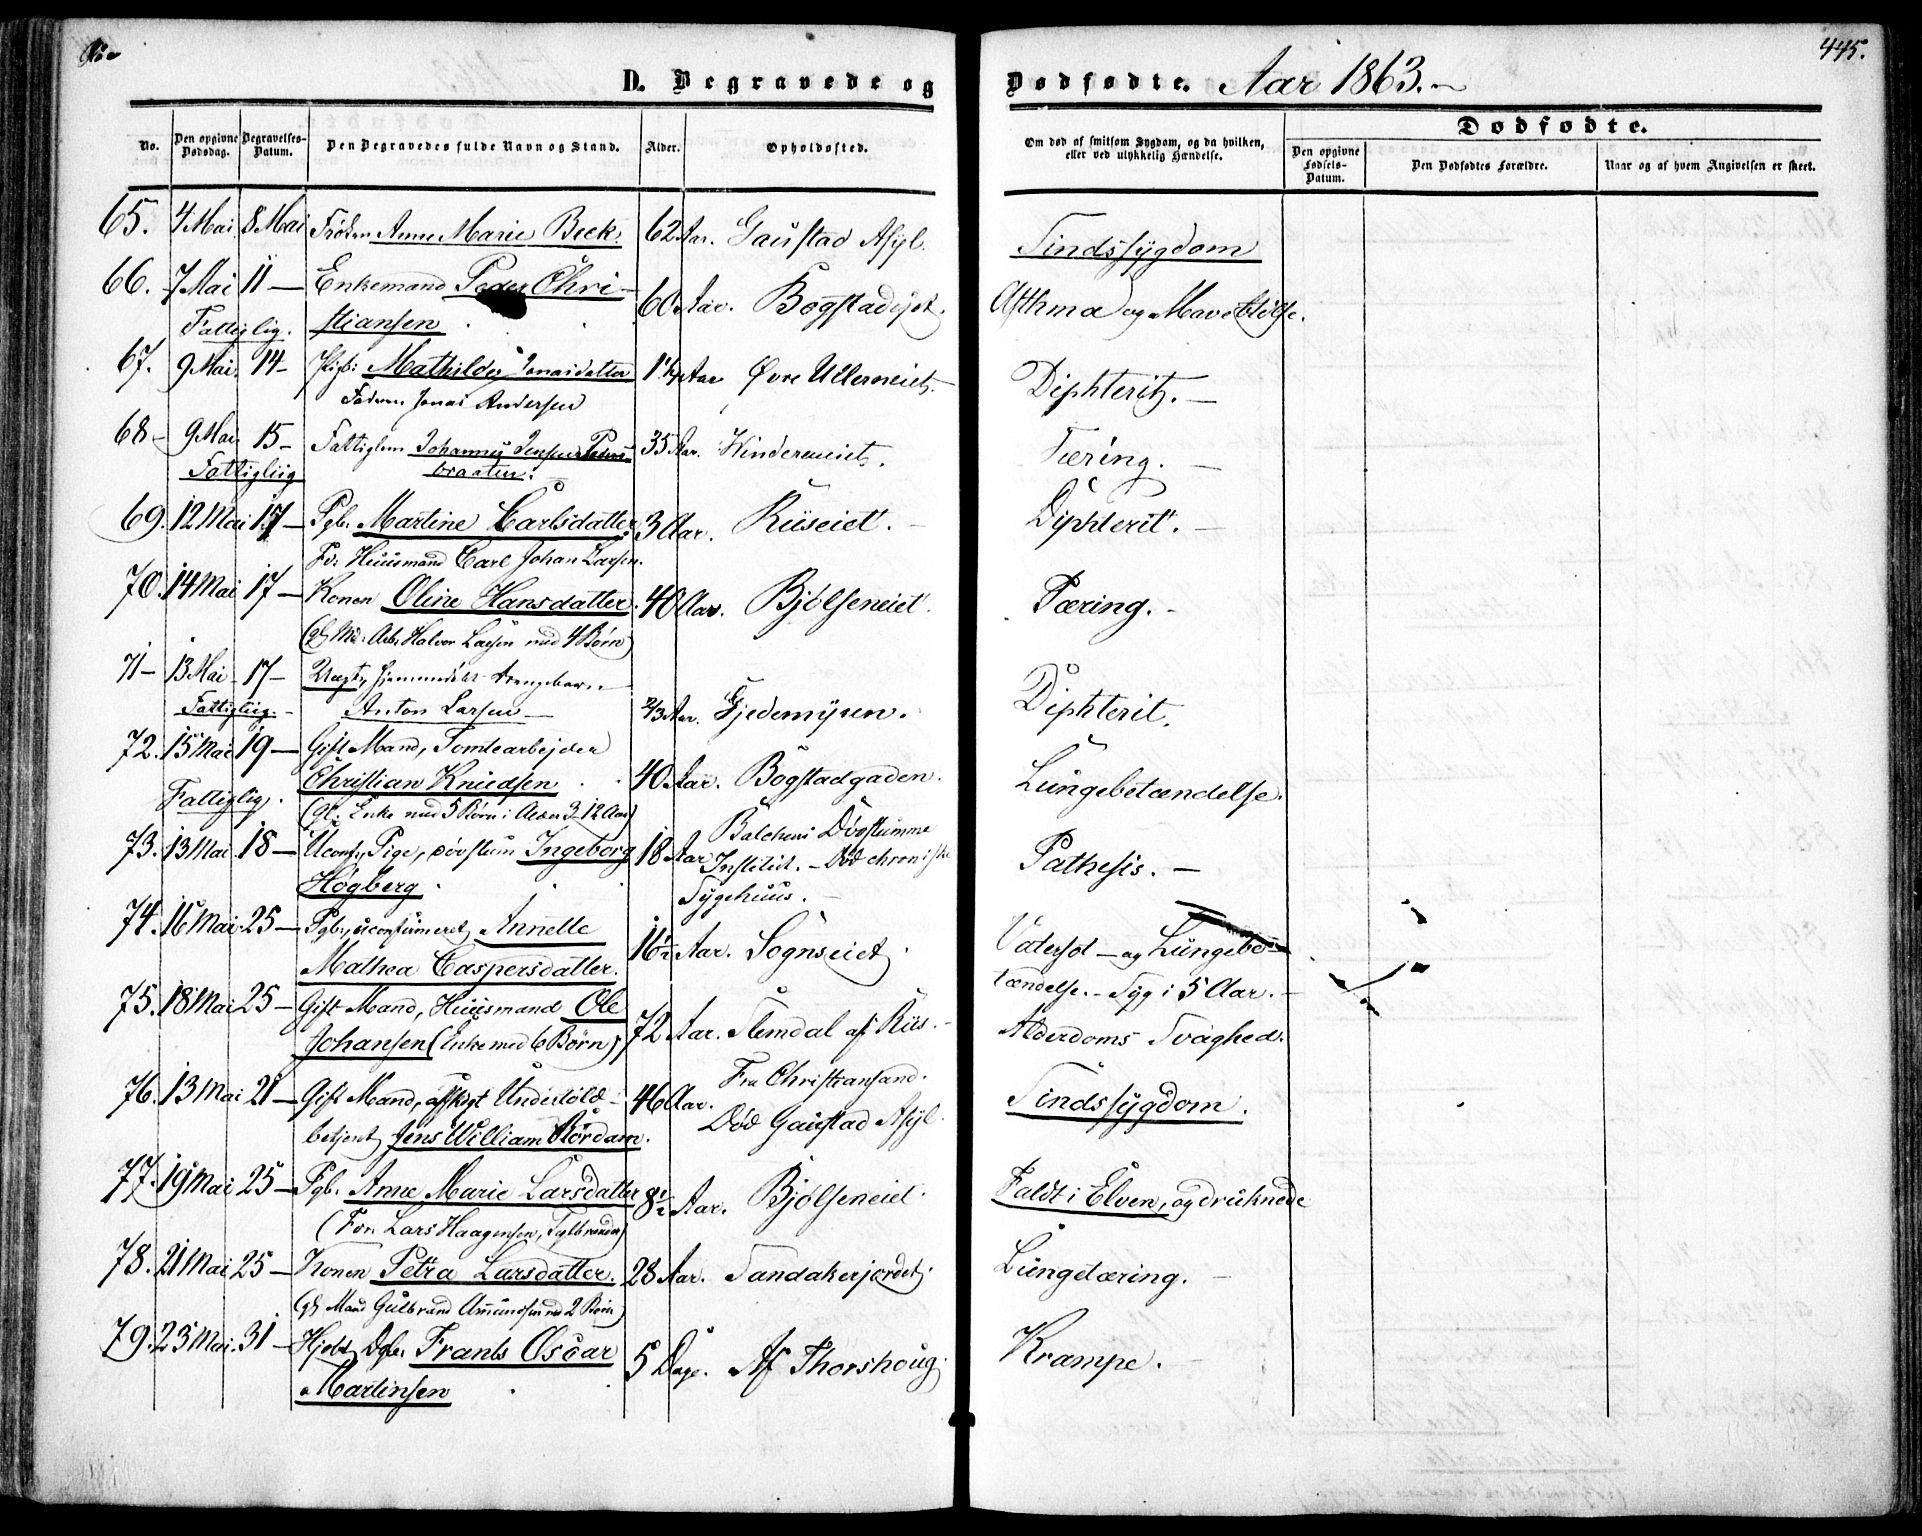 445.
D. Begravede og Dødfødte. Aar 1863.
No. Den opgivne Dødsdag. Begravelses-Datum. Den Begravedes fulde Navn og Stand. Alder. Opholdssted. Om død af smitsom Sygdom, og da hvilken, eller ved ulykkelig Hændelse. Dødfødte.
Den opgivne Fødsels-Datum. Den Dødfødtes Forældre. Naar og af hvem Angivelsen er skeet.
65. 4 Mai 8 Mai Frøken Anne Marie Beck. 62 Aar. Gaustad Asyl. Sindssygdom
66. 7 Mai 11 — Enkemand Peder Chri-
Fattiglig. stiansen 60 Aar. Bogstadejet. Asthma og Mave
67. 9 Mai 14 — Mathilde Jonasdatter 1 Aar Øvre Ullerneiet. Diphterit. —
Faderen Jonas Andersen
68 — 9 Mai 15 — Fattiglem Johannes Jensen
Fattigliig braaten. 35 Aar. Vindereneiet. Tæring. —
69. 12 Mai 17 — Pgb. Martine Carlsdatter 3 Aar. Riiseiet. — Diphterit. —
F. Huusmand Carl Johan Larsen.
70. 14 Mai 17 — Konen Oline Hansdatter. 40 Aar. Bjølseneiet. Tæring. —
(gl. M. Arb. Halvor Larsen med 4 Børn)
71 — 13 Mai — 17 — Uægt, hjemmedøbt Drengebarn
Fattigliig. — Anton Larsen — 2/3 Aar. Gjedemyren. Diphterit.
72. 15 Mai 19 — Gift Mand, Tomtearbejder
Fattiglig. Christian Knudsen 40 Aar. Bogstadgaden. Lungebetændelse.
(gl. Enke med 5 Børn i Alder 3-12 Aar)
73. 13 Mai 18 — Uconf. Pige, døvstum Ingeborg
Høgberg 18 Aar Balchens Døvstumme Institut. — Død chroniske Sygehuus. — Pathesis. —
74. 16 Mai 25 — Pgb., uconfirmeret, Annette
Mathea Caspersdatter. 16 1/2 Aar. Sognseiet Vatersot — og Lungebe-
tændelse. — Syg i 5 Aar. —
75. 18 Mai 25 — Gift Mand, Huusmand Ole
Johansen (Enke med 6 Børn) 72 Aar. Slemdal af Riis. — Alderdoms Svaghed.
76. 13 Mai 21 — Gift Mand, afskjet Undertold-
betjent, Jens William Rørdam. 46 Aar. Fra Christiansand. Død Gaustad Asyl. Sindssygdom.
77. 19 Mai 25 — Pgb. Anne Marie Larsdatter 8 1/2 Aar. Bjølseneiet. Faldt i Elven, og druknede
(For. Lars Haagensen,
78. 21 Mai 25 — Konen Petra Larsdatter. 28 Aar. Sandakerjordet. Lungetæring. —
(gl. Mand Gulbrand Amundsen med 2 Børn)
79. 23 Mai. 31 — Hjdbt. Dgb. Frants Oscar
Martinsen 5 Dage. Af Thorshoug. Krampe. —